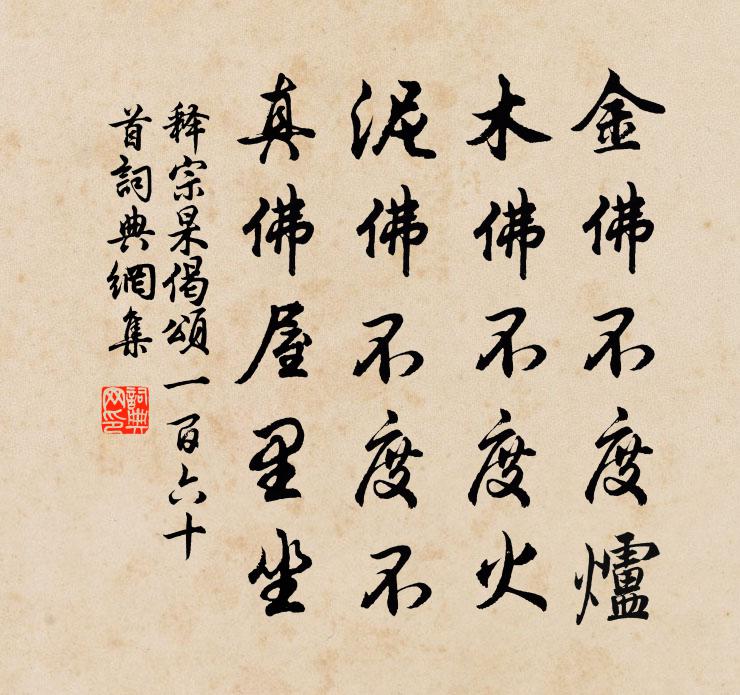 金佛不度爐
木佛不度火
泥佛不度不
真佛屋里坐
释宗杲偈頌一百六十
首詞典網集
詞典
网印